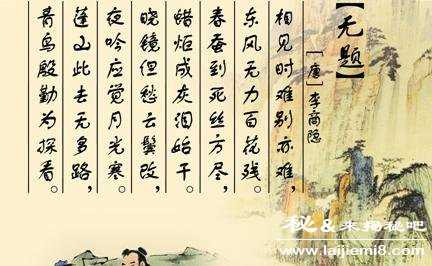 【无题】
[唐]李商隐
相见时难别亦难,
东风无力百花残。
春蚕到死丝方尽,
蜡炬成灰泪始干。
晓镜但愁云鬓改,
夜吟应觉月光寒。
蓬山此去无多路,
青鸟殷勤为探看。
秘&来揭秘吧
www.laijiemi8.com